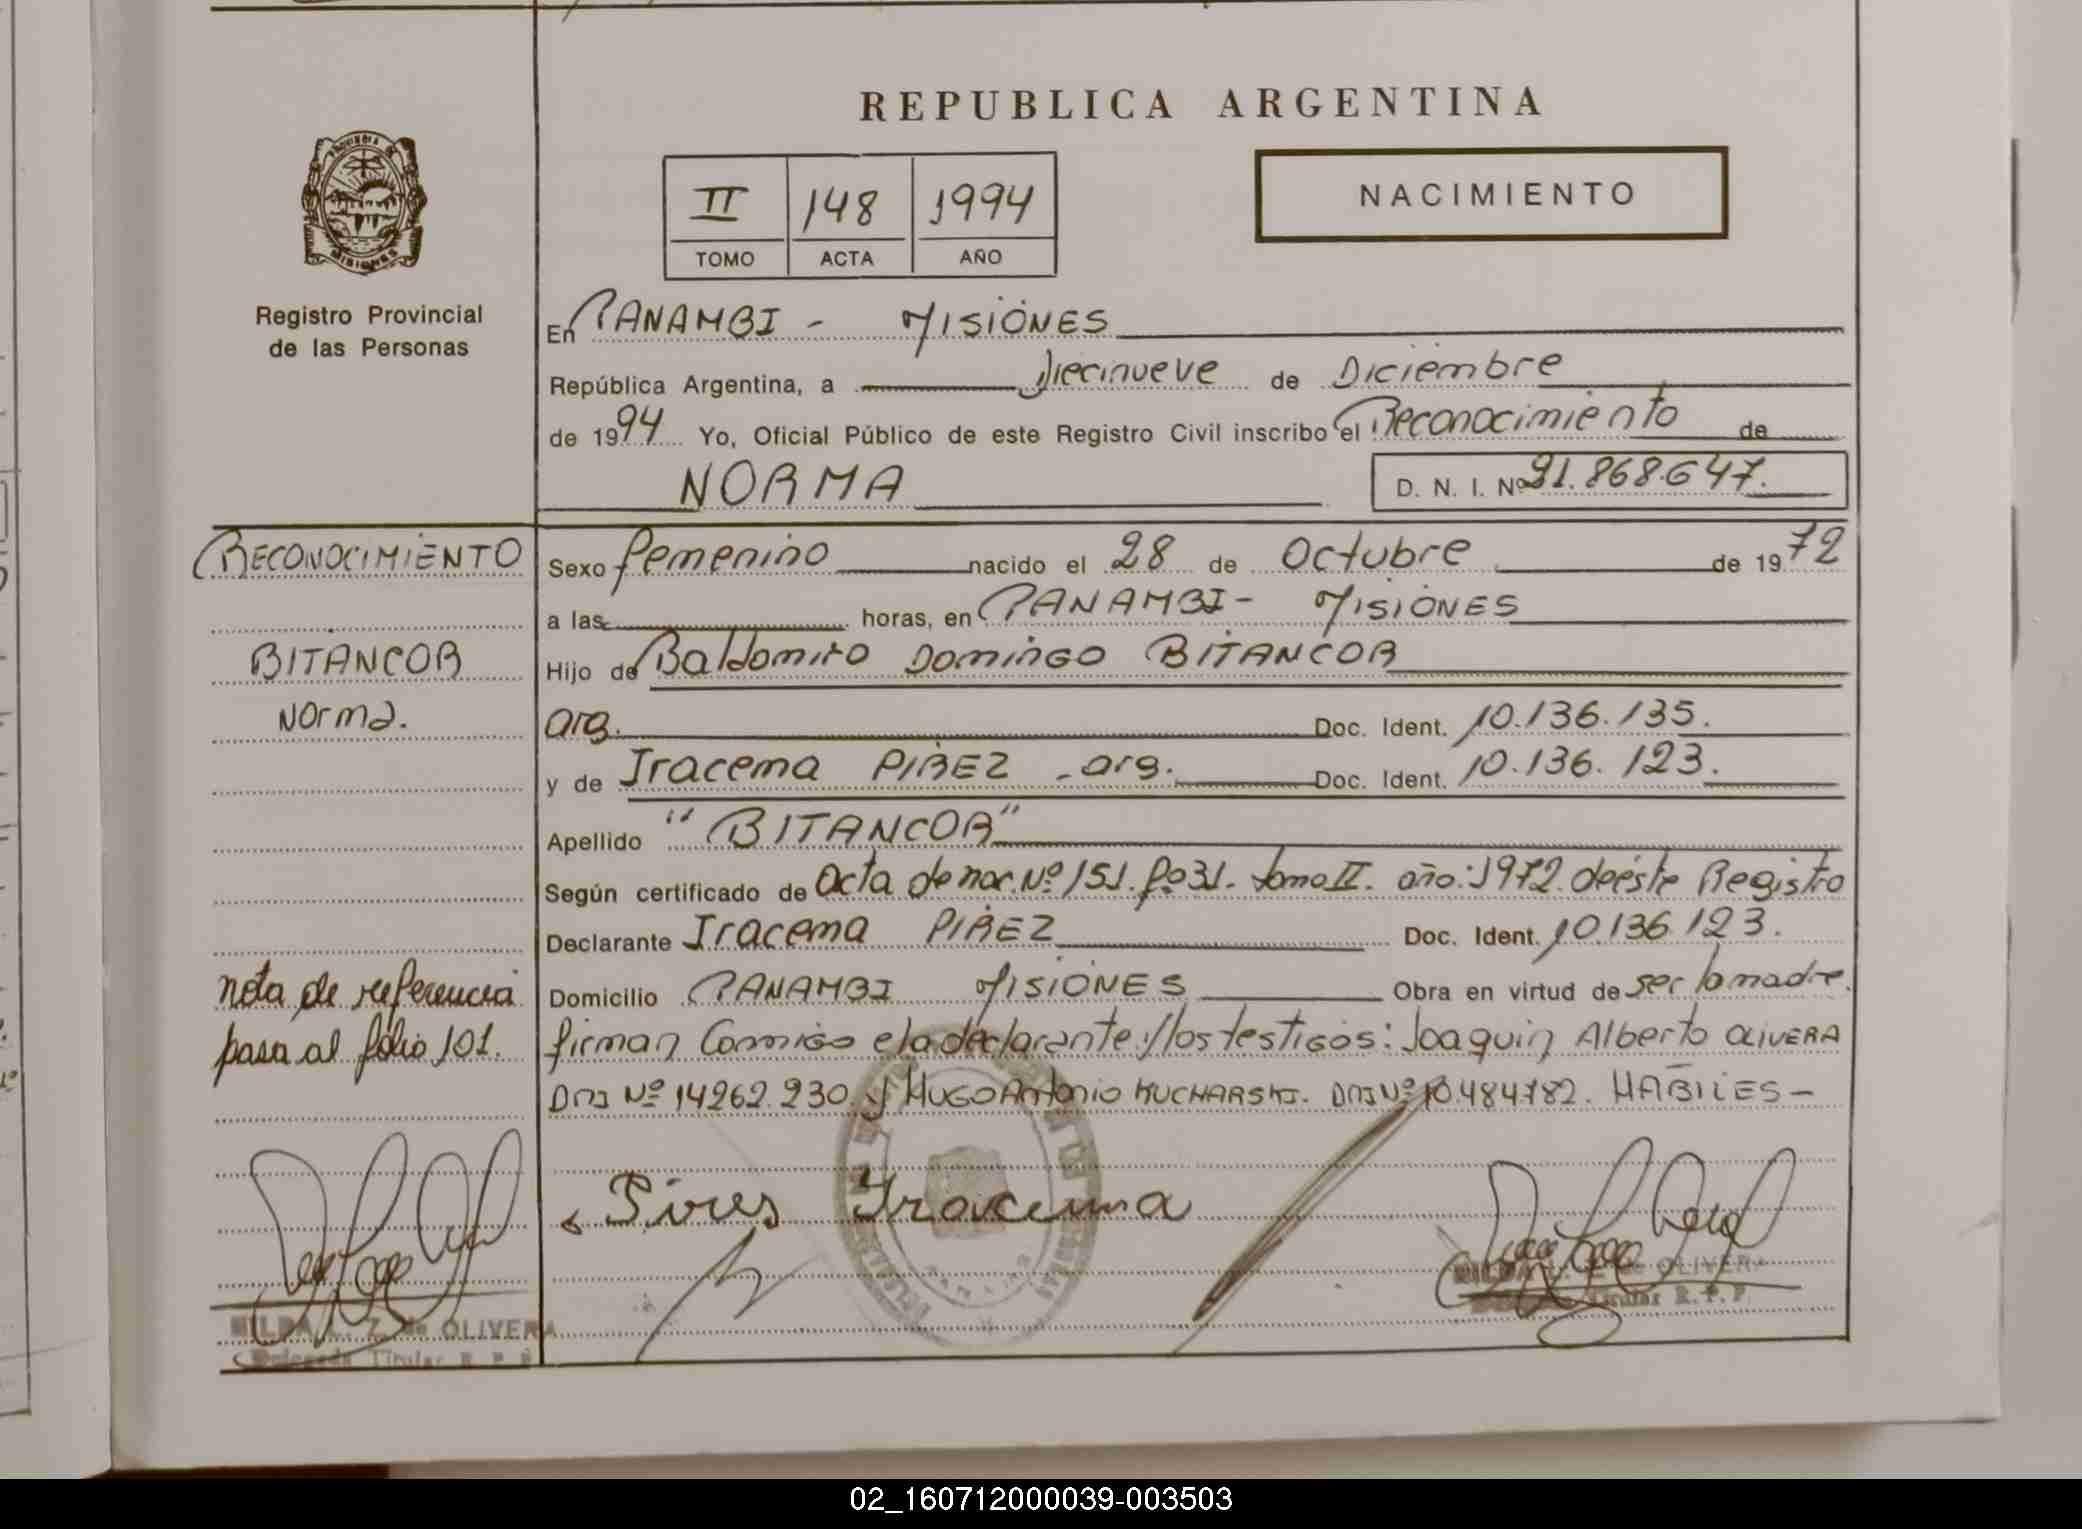 REPUBLICA ARGENTINA
NACIMIENTO
II 148 1994
TOMO ACTA AÑO
MISIONES
Registro Provincial
de las Personas
En PANAMBI - MISIONES
República Argentina, a Diecinueve de Diciembre
de 1994 Yo, Oficial Público de este Registro Civil inscribo el Reconocimiento de
NORMA D. N. I. Nº 91.868.647.
RECONOCIMIENTO
BITANCOR
Norma.
Sexo femenino nacido el 28 de Octubre de 1972
a las horas, en PANAMBI - MISIONES
Hijo de Baldomiro DOMINGO BITANCOR
arg. Doc. Ident. 10.136.135.
y de Iracema PIREZ - arg. Doc. Ident. 10.136.123.
Apellido "BITANCOR"
Según certificado de Acta de nac. Nº 151. fº 31. tomo II. año: 1972. de éste Registro
Declarante Iracema PIREZ Doc. Ident. 10.136.123.
Domicilio PANAMBI MISIONES Obra en virtud de ser la madre.
nota de referencia
pasa al folio 101.
firman Conmigo ela declarante y los testigos: Joaquin Alberto OLIVERA
DNI Nº 14262.230. y HUGO Antonio KUCHARSKI. DNI Nº 10.484782. HÁBILES -
Pires Iracema
HILDA L. Z. de OLIVERA
Delegada Titular R. P. P.
OLIVERA
Titular R. P. P.
02_160712000039-003503